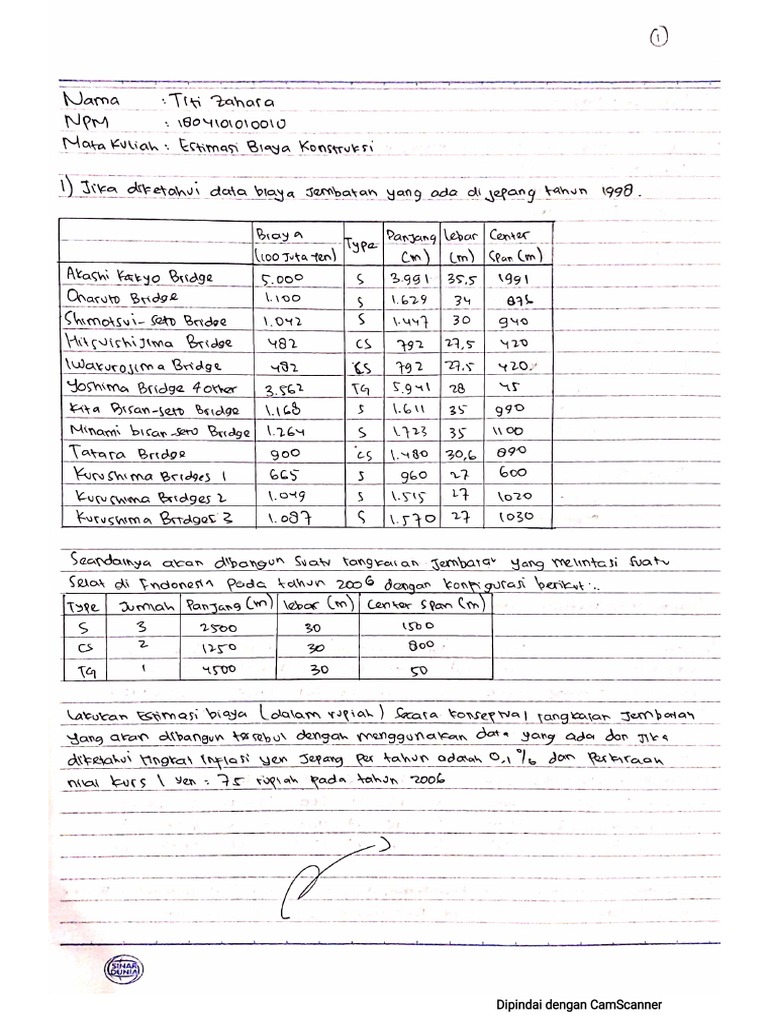 1
Nama : Titi Zahara
NPM : 1804101010010
Mata Kuliah : Estimasi Biaya Konstruksi
1) Jika diketahui data biaya jembatan yang ada di jepang tahun 1998.
Biaya (100 Juta Yen) Type Panjang (m) Lebar (m) Center Span (m)
Akashi Kaikyo Bridge 5.000 S 3.991 35,5 1991
Onaruto Bridge 1.100 S 1.629 34 876
Shimotsui-seto Bridge 1.042 S 1.447 30 940
Hitsuishijima Bridge 482 CS 792 27,5 420
Iwakurojima Bridge 482 CS 792 27,5 420
Yoshima Bridge 4 other 3.562 TG 5.941 28 45
Kita Bisan-seto Bridge 1.168 S 1.611 35 990
Minami bisan-seto Bridge 1.264 S 1.723 35 1100
Tatara Bridge 900 CS 1.480 30,6 890
Kurushima Bridges 1 665 S 960 27 600
Kurushima Bridges 2 1.049 S 1.515 27 1020
Kurushima Bridges 3 1.087 S 1.570 27 1030
Seandainya akan dibangun suatu rangkaian jembatan yang melintasi suatu
selat di Indonesia pada tahun 2006 dengan konfigurasi berikut :.
Type Jumlah Panjang (m) lebar (m) Center Span (m)
S 3 2500 30 1500
CS 2 1250 30 800
TG 1 4500 30 50
Lakukan Estimasi biaya (dalam rupiah) secara konseptual rangkaian jembatan
yang akan dibangun tersebut dengan menggunakan data yang ada dan jika
diketahui tingkat inflasi yen jepang per tahun adalah 0,1 % dan perkiraan
nilai kurs 1 yen : 75 rupiah pada tahun 2006
SINAR
DUNIA
Dipindai dengan CamScanner